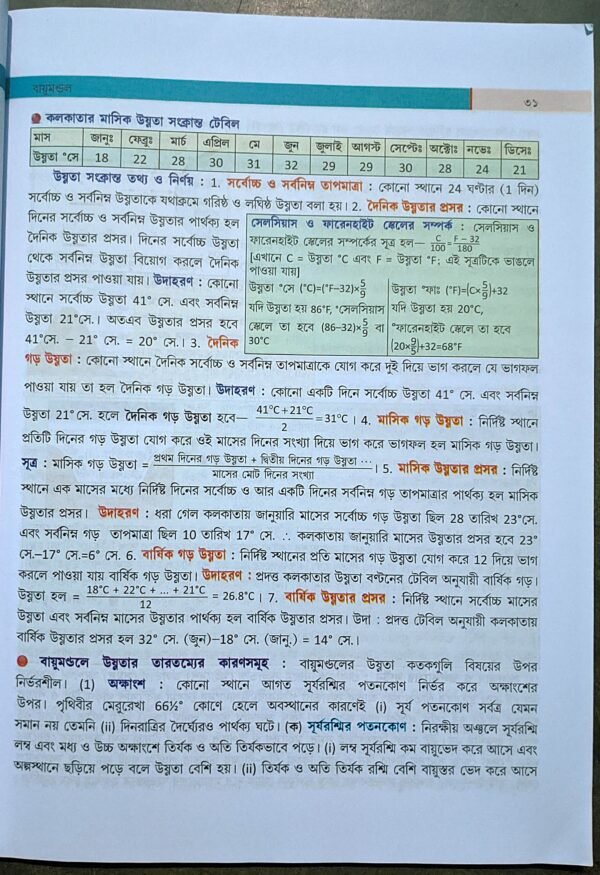 বায়ুমণ্ডল
৩১
কলকাতার মাসিক উষ্ণতা সংক্রান্ত টেবিল
মাস জানুঃ ফেব্রুঃ মার্চ এপ্রিল মে জুন জুলাই আগস্ট সেপ্টেঃ অক্টোঃ নভেঃ ডিসেঃ
উষ্ণতা °সে 18 22 28 30 31 32 29 29 30 28 24 21
উষ্ণতা সংক্রান্ত তথ্য ও নির্ণয় : 1. সর্বোচ্চ ও সর্বনিম্ন তাপমাত্রা : কোনো স্থানে 24 ঘণ্টার (1 দিন)
সর্বোচ্চ ও সর্বনিম্ন উষ্ণতাকে যথাক্রমে গরিষ্ঠ ও লঘিষ্ঠ উষ্ণতা বলা হয়। 2. দৈনিক উষ্ণতার প্রসর : কোনো স্থানে
দিনের সর্বোচ্চ ও সর্বনিম্ন উষ্ণতার পার্থক্য হল
দৈনিক উষ্ণতার প্রসর। দিনের সর্বোচ্চ উষ্ণতা
থেকে সর্বনিম্ন উষ্ণতা বিয়োগ করলে দৈনিক
উষ্ণতার প্রসর পাওয়া যায়। উদাহরণ : কোনো
স্থানে সর্বোচ্চ উষ্ণতা 41° সে. এবং সর্বনিম্ন
উষ্ণতা 21°সে.। অতএব উষ্ণতার প্রসর হবে
41°সে. - 21° সে. = 20° সে.। 3. দৈনিক
সেলসিয়াস ও ফারেনহাইট স্কেলের সম্পর্ক : সেলসিয়াস ও
ফারেনহাইট স্কেলের সম্পর্কের সূত্র হল— C/100 = F − 32/180
[এখানে C = উষ্ণতা °C এবং F = উষ্ণতা °F; এই সূত্রটিকে ভাঙলে
পাওয়া যায়]
উষ্ণতা °সে (°C)=(°F−32)×5/9
যদি উষ্ণতা হয় 86°F, °সেলসিয়াস
স্কেলে তা হবে (86−32)×5/9 বা
30°C
উষ্ণতা °ফাঃ (°F)=(C×5/9)+32
যদি উষ্ণতা হয় 20°C,
°ফারেনহাইট স্কেলে তা হবে
(20×9/5)+32=68°F
গড় উষ্ণতা : কোনো স্থানে দৈনিক সর্বোচ্চ ও সর্বনিম্ন তাপমাত্রাকে যোগ করে দুই দিয়ে ভাগ করলে যে ভাগফল
পাওয়া যায় তা হল দৈনিক গড় উষ্ণতা। উদাহরণ : কোনো একটি দিনে সর্বোচ্চ উষ্ণতা 41° সে. এবং সর্বনিম্ন
উষ্ণতা 21°সে. হলে দৈনিক গড় উষ্ণতা হবে— 41°C + 21°C/2 = 31°C। 4. মাসিক গড় উষ্ণতা : নির্দিষ্ট স্থানে
প্রতিটি দিনের গড় উষ্ণতা যোগ করে ওই মাসের দিনের সংখ্যা দিয়ে ভাগ করে ভাগফল হল মাসিক গড় উষ্ণতা।
সূত্র : মাসিক গড় উষ্ণতা = প্রথম দিনের গড় উষ্ণতা + দ্বিতীয় দিনের গড় উষ্ণতা .../মাসের মোট দিনের সংখ্যা। 5. মাসিক উষ্ণতার প্রসর : নির্দিষ্ট
স্থানে এক মাসের মধ্যে নির্দিষ্ট দিনের সর্বোচ্চ ও আর একটি দিনের সর্বনিম্ন গড় তাপমাত্রার পার্থক্য হল মাসিক
উষ্ণতার প্রসর। উদাহরণ : ধরা গেল কলকাতায় জানুয়ারি মাসের সর্বোচ্চ গড় উষ্ণতা ছিল 28 তারিখ 23°সে.
এবং সর্বনিম্ন গড় তাপমাত্রা ছিল 10 তারিখ 17° সে. ∴ কলকাতায় জানুয়ারি মাসের উষ্ণতার প্রসর হবে 23°
সে.−17° সে.=6° সে. 6. বার্ষিক গড় উষ্ণতা : নির্দিষ্ট স্থানের প্রতি মাসের গড় উষ্ণতা যোগ করে 12 দিয়ে ভাগ
করলে পাওয়া যায় বার্ষিক গড় উষ্ণতা। উদাহরণ : প্রদত্ত কলকাতার উষ্ণতা বণ্টনের টেবিল অনুযায়ী বার্ষিক গড়।
উষ্ণতা হল = 18°C + 22°C + ... + 21°C/12 = 26.8°C। 7. বার্ষিক উষ্ণতার প্রসর : নির্দিষ্ট স্থানে সর্বোচ্চ মাসের
উষ্ণতা এবং সর্বনিম্ন মাসের উষ্ণতার পার্থক্য হল বার্ষিক উষ্ণতার প্রসর। উদা : প্রদত্ত টেবিল অনুযায়ী কলকাতায়
বার্ষিক উষ্ণতার প্রসর হল 32° সে. (জুন)−18° সে. (জানু.) = 14° সে.।
বায়ুমণ্ডলে উষ্ণতার তারতম্যের কারণসমূহ : বায়ুমণ্ডলের উষ্ণতা কতকগুলি বিষয়ের উপর
নির্ভরশীল। (1) অক্ষাংশ : কোনো স্থানে আগত সূর্যরশ্মির পতনকোণ নির্ভর করে অক্ষাংশের
উপর। পৃথিবীর মেরুরেখা 66½° কোণে হেলে অবস্থানের কারণেই (i) সূর্য পতনকোণ সর্বত্র যেমন
সমান নয় তেমনি (ii) দিনরাত্রির দৈর্ঘ্যেরও পার্থক্য ঘটে। (ক) সূর্যরশ্মির পতনকোণ : নিরক্ষীয় অঞ্চলে সূর্যরশ্মি
লম্ব এবং মধ্য ও উচ্চ অক্ষাংশে তির্যক ও অতি তির্যকভাবে পড়ে। (i) লম্ব সূর্যরশ্মি কম বায়ুভেদ করে আসে এবং
অল্পস্থানে ছড়িয়ে পড়ে বলে উষ্ণতা বেশি হয়। (ii) তির্যক ও অতি তির্যক রশ্মি বেশি বায়ুস্তর ভেদ করে আসে